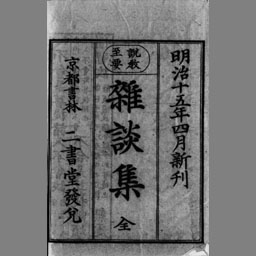 明治十五年四月新刊
説教
至要
雜談集 全
京都書林 二書堂發兌